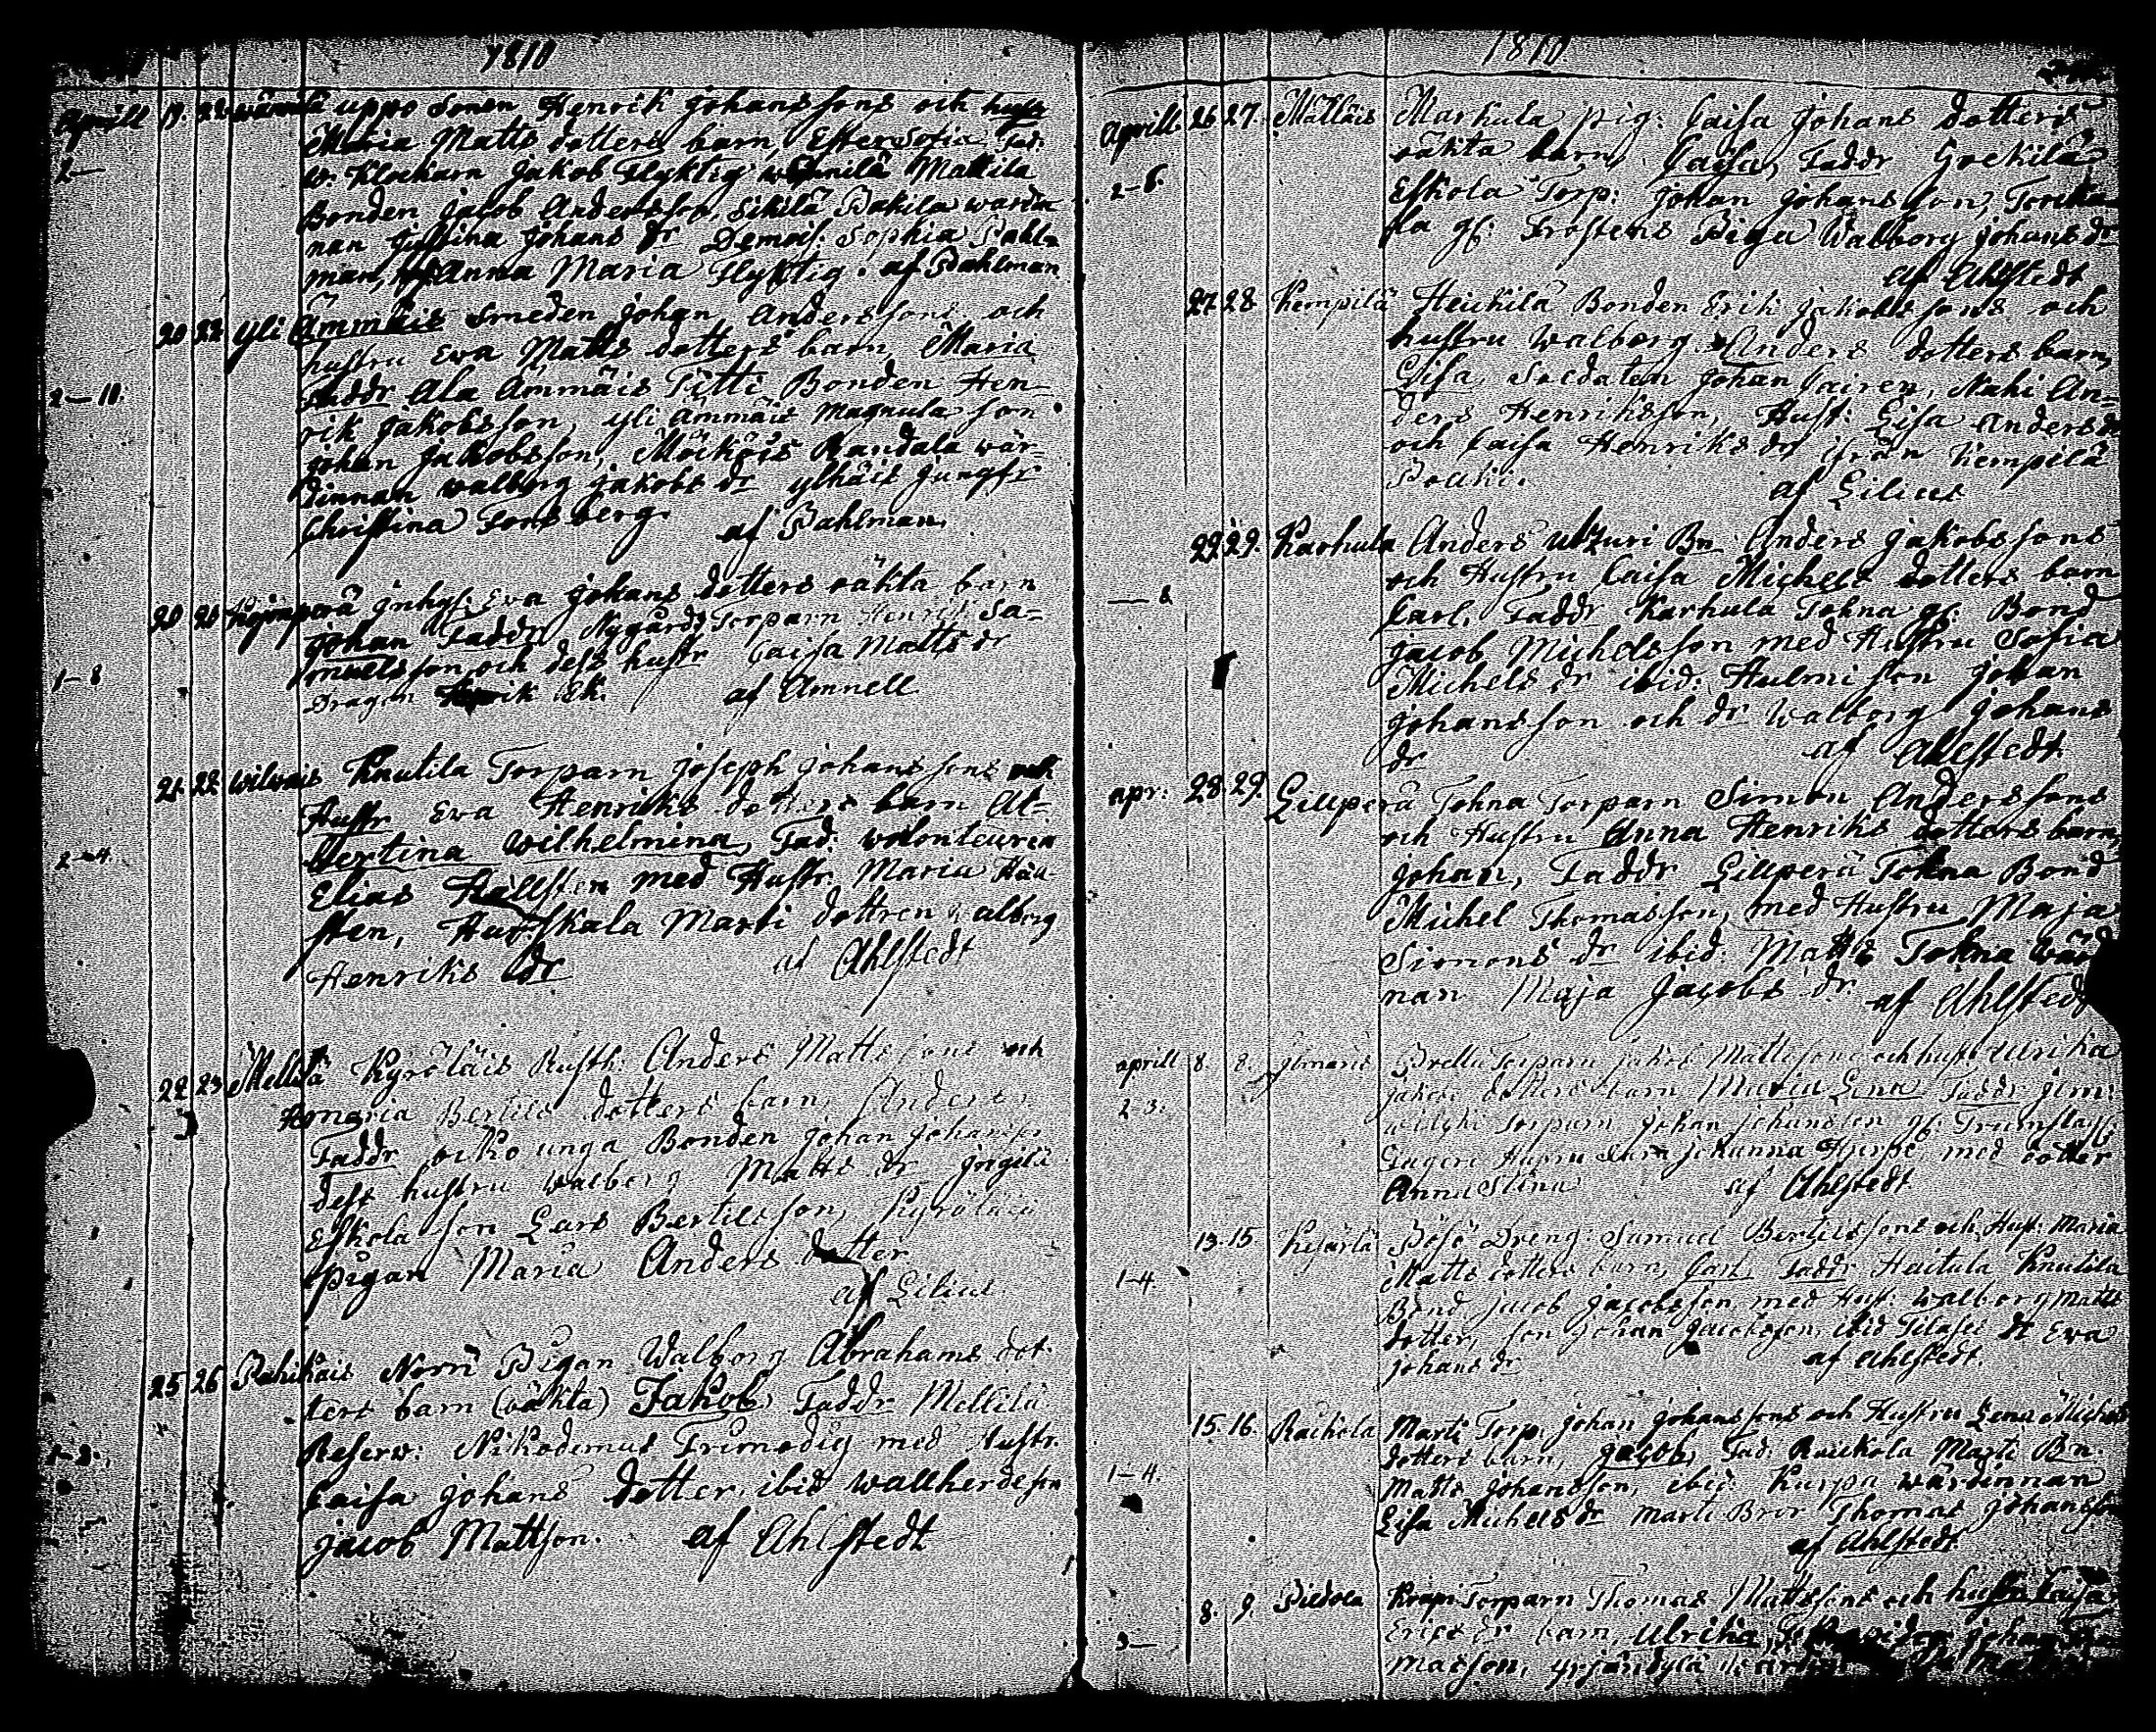 1810
Aprill 19. 22 uppo Sonen Henrik Johanssons och hustr
Maria Matts dotters barn, Ester Sofia, Fad.
2— w. Klockarn Jakob Flyktig Mattila
Bonden Jacob Andersson, Sikilä Pakila wardin
nan Justina Johans dr Demois: Sophia Pahl=
man, Anna Maria Flyktig. af Pahlman
20 22 Yli Ammäis Smeden Johan Anderssons och
hustru Ewa Matts dotters barn, Maria
Faddr Ala Ammäis Pitti Bonden Hen=
2—10. rik Jakobsson, Yli Ammäis Magnula son
Johan Jakobsson, Möikäis Randala wär=
dinnan Walborg Jakobs dr ylhäis Jungfr
Christina Forsberg. af Pahlman.
20 26 Kojonperä Inhys. Ewa Johans dotters oäkta barn
Johan Faddr Nygårds Torparn Henrik Sa=
1—8 muelsson och dess hustr Caisa Matts dr
Dragon Henrik Ek. af Amnell
21. 22 Wilwais Knutila Torparn Joseph Johanssons och
Hustr Ewa Henriks dotters barn Al=
2—4. bertina Wilhelmina, Fad: volonteuren
Elias Hällsten med Hustr. Maria Häll
sten, Marti dottren Walborg
Henriks dr af Ahlstedt
22 23 Mellilä Kyröläis Rusth: Anders Matts sons och
Anamaria Bertils dotters barn, Anders
Faddr unga Bonden Johan Johansson
dess hustru Walborg Matts dr
Eskola son Lars Bertilsson, Kyröläis
pigan Maria Anders dotter
af Lilius.
25 26 Pahikais Norri Pigan Walborg Abrahams dot-
ters barn (oäkta) Jakob, Faddr Mellilä
1—3. Reserv: Nikodemus Trumodig med Hustr.
Caisa Johans dotter, ibid wallherdeson
Jacob Mattson. af Ahlstedt
1810.
Aprill. 26 27. Mälläis Markula pig: Caisa Johans dotters
oäkta barn, Caisa, Faddr
2—6. Eskola Torp: Johan Johansson,
la gf: Frostens Piga Walborg Johans dr
af Ahlstedt
27. 28 Kempilä Heickilä Bonden Erik Jakobssons och
hustru Walborg Anders dotters barn,
Lisa, Soldaten Johan Cairen, Nahi An=
ders Henriksson, Hust: Lisa Anders dr
och Caisa Henriks dr ifrån Kempilä
Pouki. af Lilius
29. 29. Karhula Anders Uotzuri Bn Anders Jakobssons
och Hustru Caisa Michels dotters barn
—8 Carl, Faddr Karhula Tokna gf. Bond
Jacob Michelsson med Hustru Sofia
Michels dr ibid: Hulmi son Johan
Johansson och dr Walborg Johans
dr af Ahlstedt
apr: 28. 29. Lillperä Tokna Torparn Simon Anderssons
och Hustru Anna Henriks dotters barn,
Johan, Faddr Lillperä Tokna Bond
Michel Thomasson, med Hustru Maja
Simons dr ibid. Matts Tokna wärd
nan Maja Jacobs dr. af Ahlstedt
aprill 8. 8. Torparn Jakob Mattssons och hust: Ulrika
2—3. Jakobs dotters barn Maria Lena Faddr
Torparn Johan Johansson gf.
Hustru Johanna Hjerpe, med dotter
Anna Stina af Ahlstedt.
13. 15 Kisarla Dreng: Samuel Bertilssons och Hust: Maria
1—4. Matts dotters barn, Carl, Faddr Haitula Knutila
Bond Jacob Jacobsson med Hust: Walborg Matts
dotter, son Johan Jacobsson, ibid dr Ewa
Johans dr af Ahlstedt.
15. 16. Raikola Marti Torp. Johan Johanssons och Hustru Lena Michels
dotters barn, Jacob, Fad: Raickola Marti Bn.
1—4. Matts Johansson, ibid. Kurpa wärdinnan
Lisa Michels dr Marti Bror Thomas Johansson
af Ahlstedt
8. 9. Pildola Torparn Thomas Mattssons och hustru Caisa
3— Erics dr barn, Ulrika, Johan